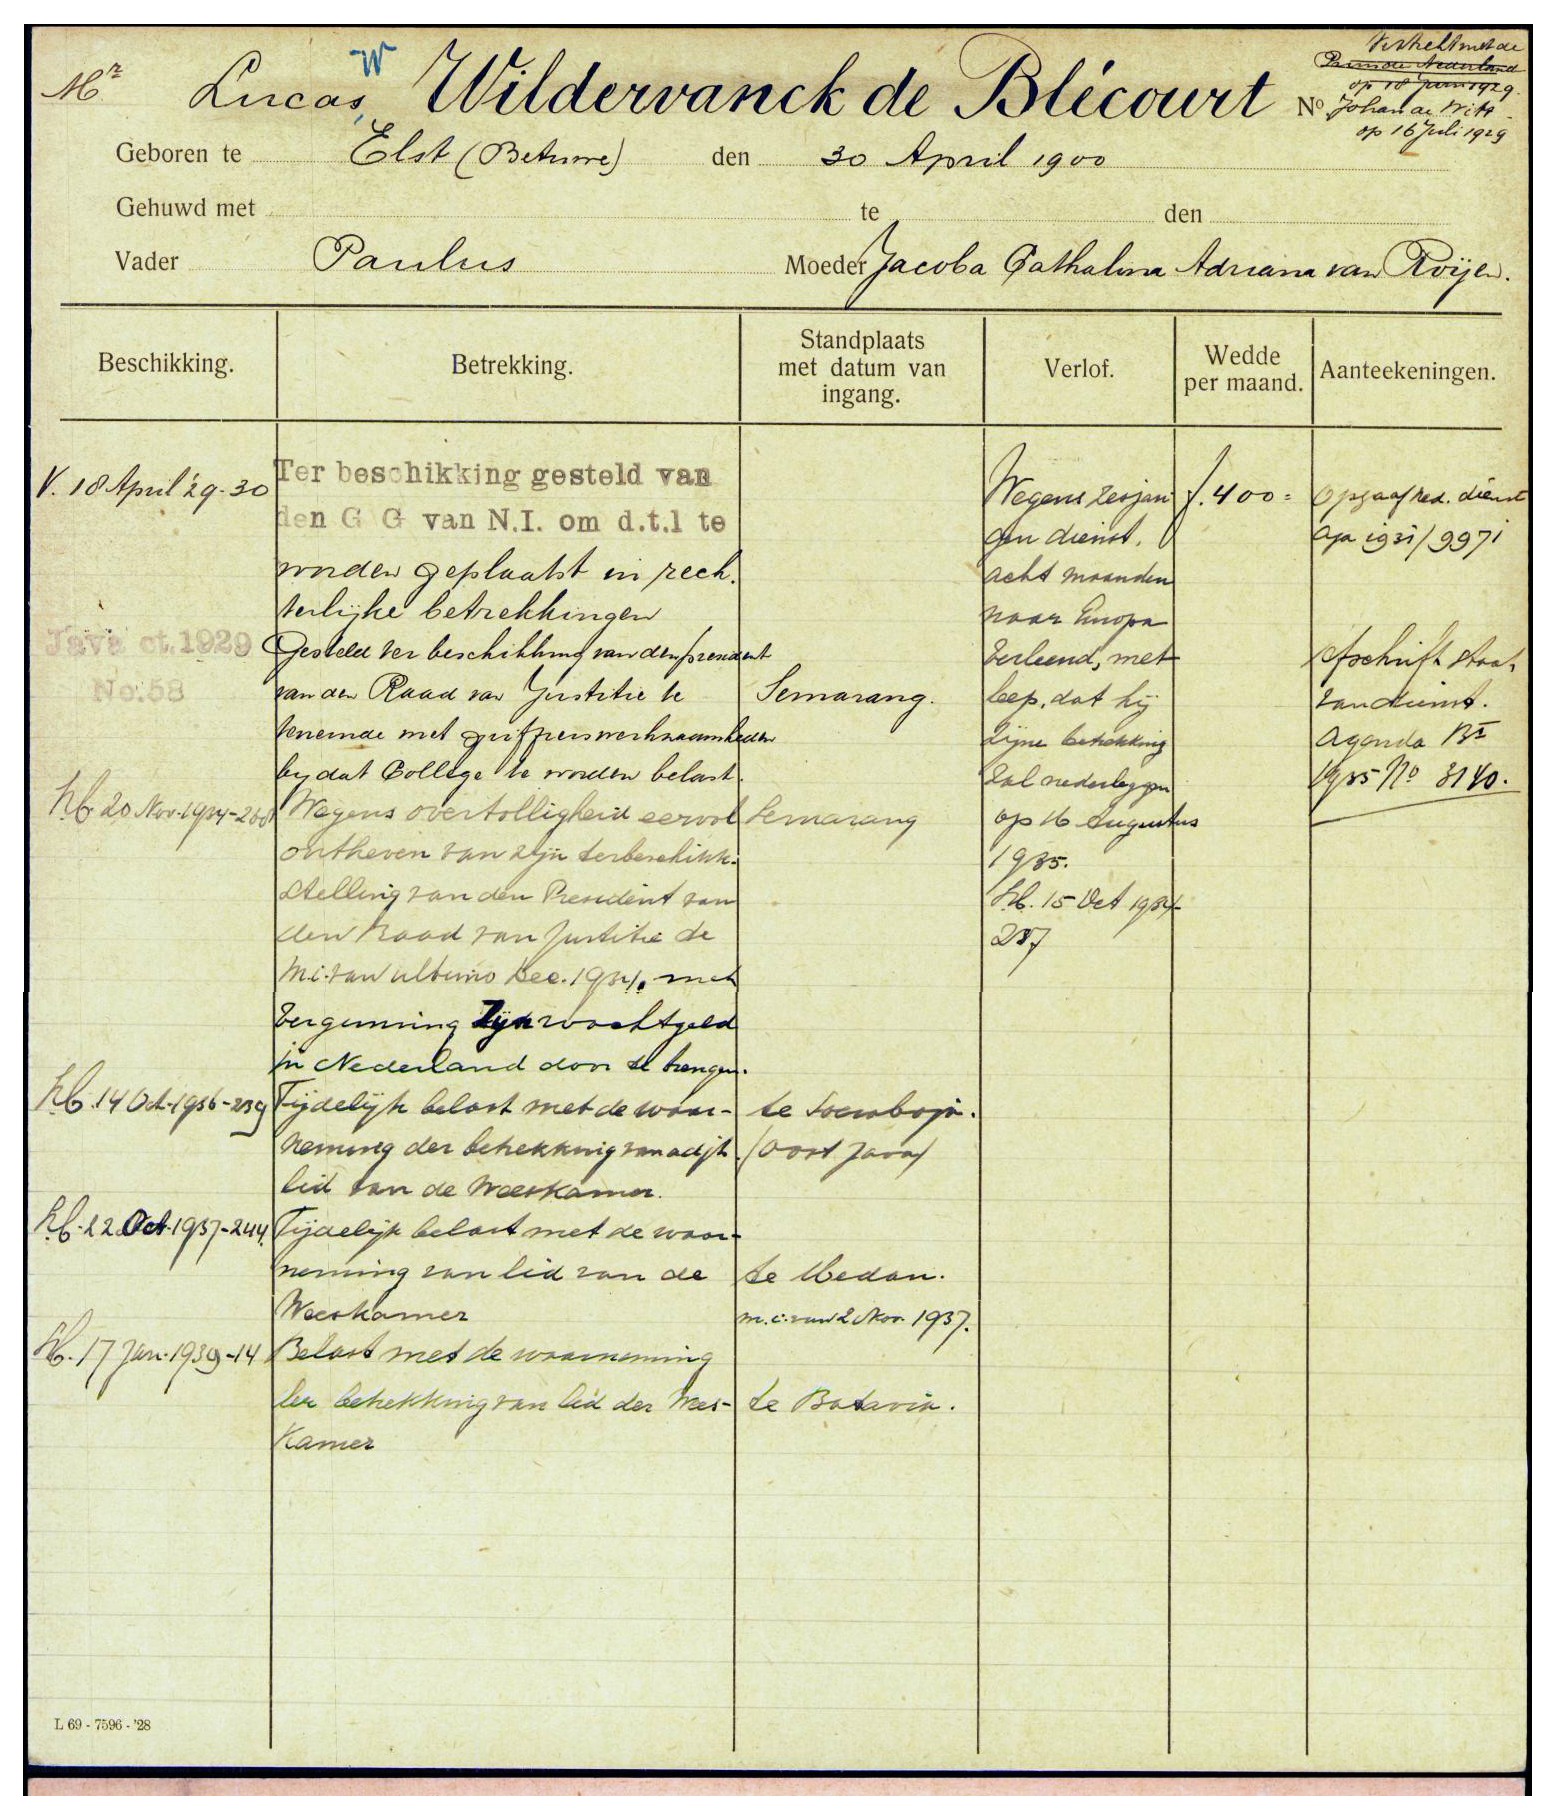 Vertrekt met de
Prins der Nederland
op 18 Juni 1929.
Mr Lucas W Wildervanck de Blécourt No
Johan de Witt
op 16 Juli 1929
Geboren te Elst (Betuwe) den 30 April 1900
Gehuwd met te den
Vader Paulus Moeder Jacoba Cathalina Adriana van Roijen.
Beschikking. Betrekking. Standplaats met datum van ingang. Verlof. Wedde per maand. Aanteekeningen.
V. 18 April '29-30
Ter beschikking gesteld van
den G G van N.I. om d.t.l te
worden geplaatst in rech-
terlijke betrekkingen
Java ct. 1929
No. 58
Gesteld ter beschikking van den president
van den Raad van Justitie te
Semarang.
teneinde met griffierswerkzaamheden
bij dat College te worden belast.
hb. 20 Nov. 1934-268
Wegens overtolligheid eervol
Semarang
ontheven van zijn terbeschikk.
stelling van den President van
den Raad van Justitie de
m.i.van ultimo Dec. 1934, met
vergunning zijn wachtgeld
in Nederland door te brengen.
hb. 14 Oct. 1936-239
Tijdelijk belast met de waar-
te Soerabaja.
neming der betrekking van adjt.
(Oost Java)
lid van de Weeskamer.
hb. 22 Oct. 1937-244.
Tijdelijk belast met de waar-
neming van lid van de
te Medan.
Weeskamer
m.i.van 2 Nov. 1937.
hb. 17 Jan. 1939-14
Belast met de waarneming
der betrekking van lid der Wees-
te Batavia.
Kamer
Wegens zesjari
gen dienst,
acht maanden
naar Europa
verleend, met
bep. dat hij
zijne betrekking
zal nederleggen
op 16 Augustus
1935.
hb. 15 Oct 1934
237
f. 400=
Opgaaf ned. dienst
aga 1931/9971
Afschrift staat
van dienst.
Agenda BI
1935 No 3140.
L 69 - 7596 - '28